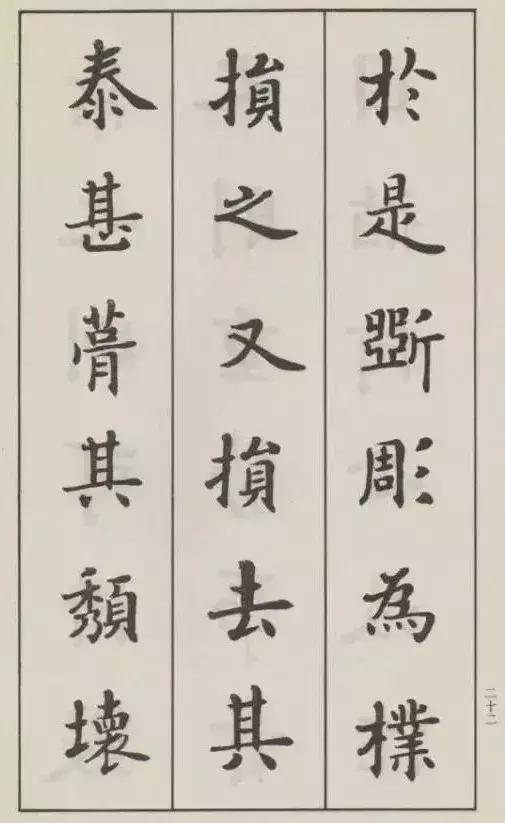 於是斲彫為樸
損之又損去其
泰甚葺其頽壞
二十二